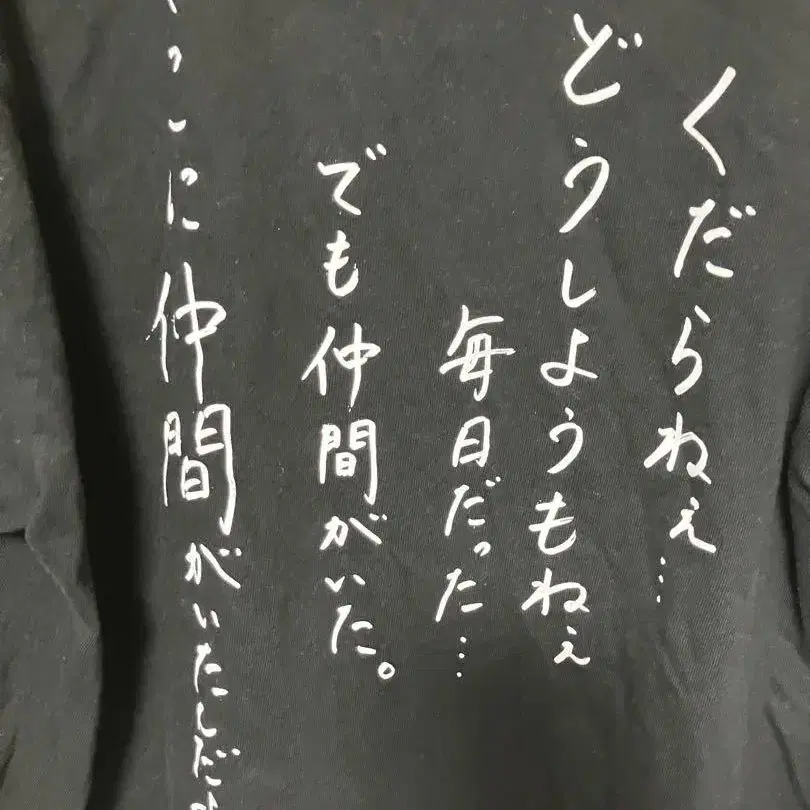 くだらねぇ…
どうしようもねぇ
毎日だった…
でも仲間がいた。
に仲間がいたんだ